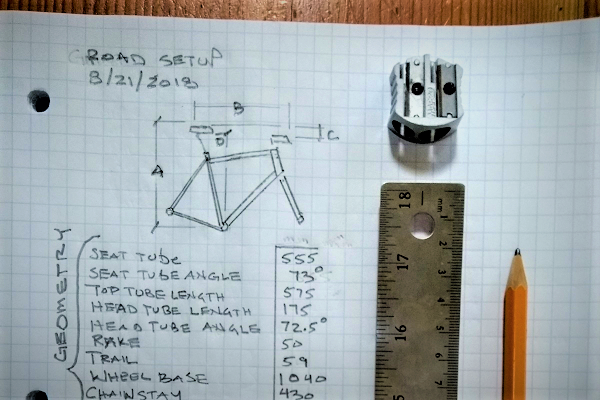 ROAD SETUP
8/21/2013
B
DT
C
A
GEOMETRY
SEAT TUBE 555
SEAT TUBE ANGLE 73°
TOP TUBE LENGTH 575
HEAD TUBE LENGTH 175
HEAD TUBE ANGLE 72.5°
RAKE 50
TRAIL 59
WHEEL BASE 1040
CHAINSTAY 430
18
17
16
mm
1
2
3
4
5
6
7